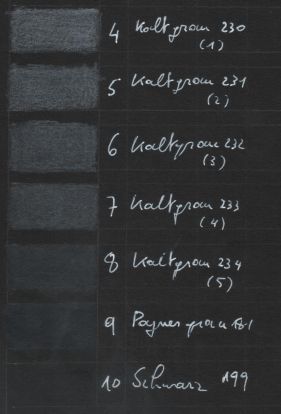 4 Kaltgrau 230
(1)
5 Kaltgrau 231
(2)
6 Kaltgrau 232
(3)
7 Kaltgrau 233
(4)
8 Kaltgrau 234
(5)
9 Paynesgrau 181
10 Schwarz 199